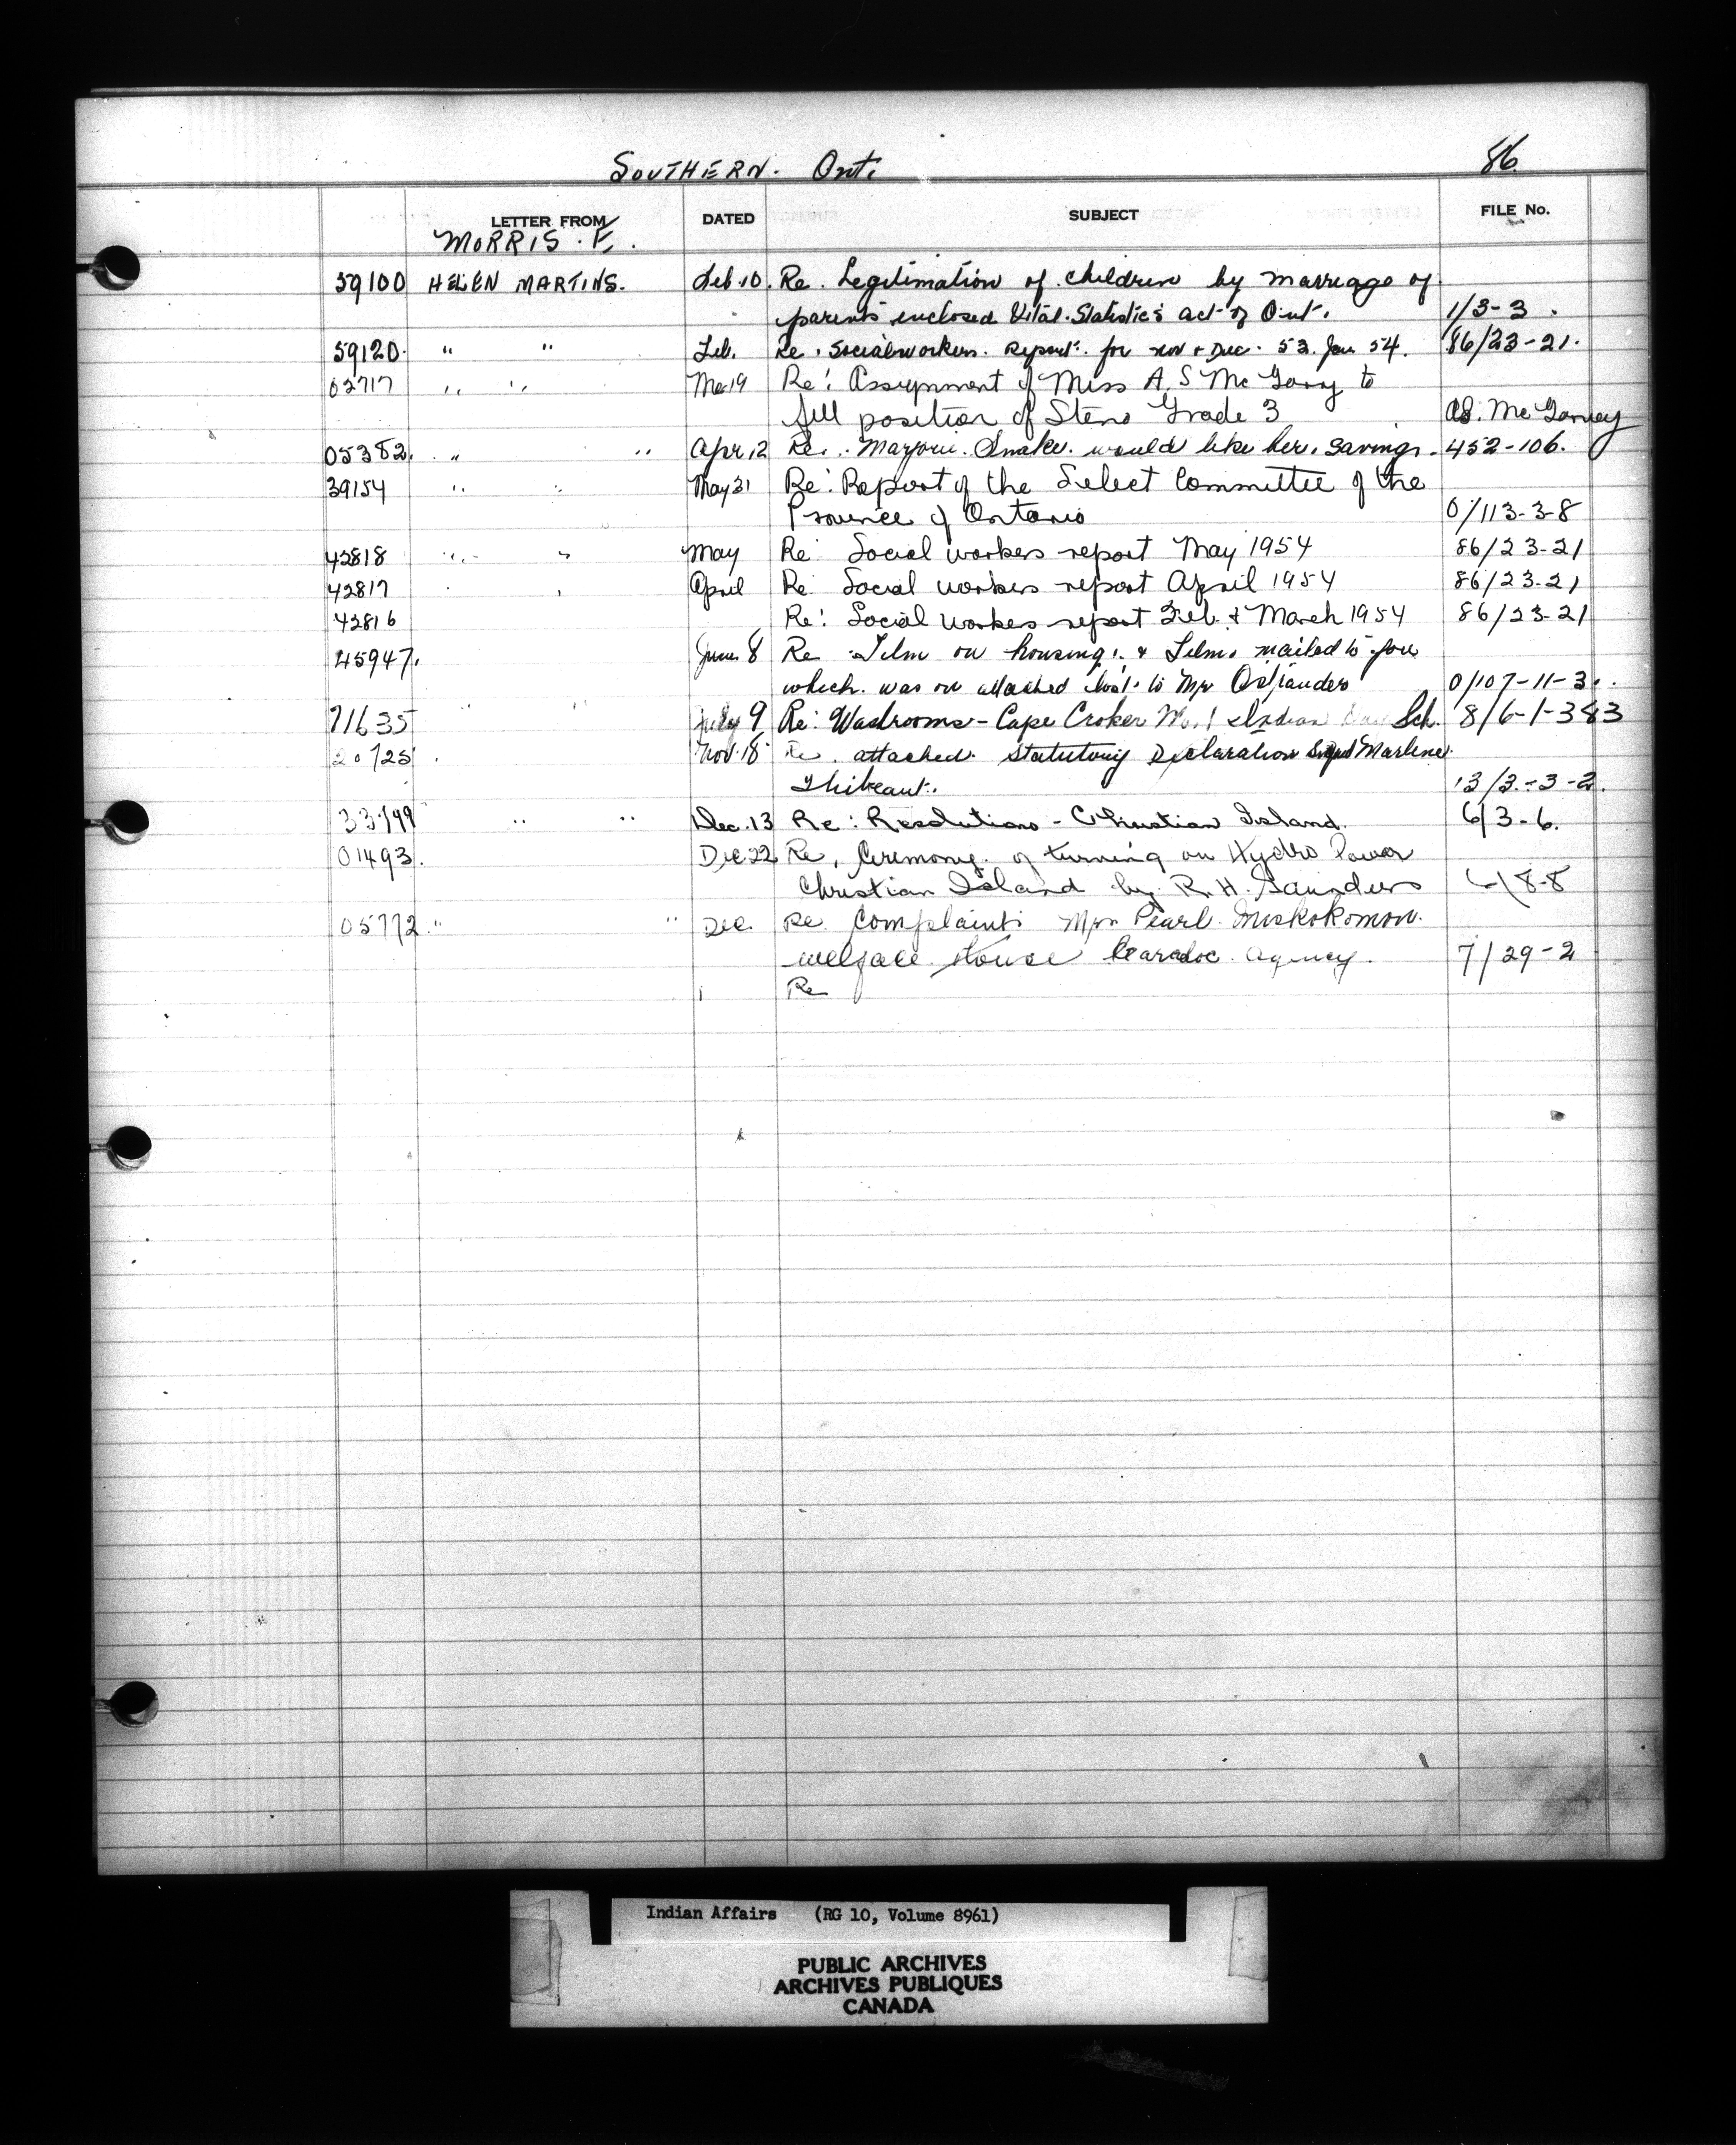 SOUTHERN. Ont. 86
LETTER FROM DATED SUBJECT FILE No.
MORRIS. F.
59100 HELEN MARTINS. Feb.10. Re. Legitimation of children by marriage of
parents enclosed Vital. Statistics act of Ont. 1/3-3.
59120. " " Feb. Re. Socialworkers. Report. for nov + Dec. 53. Jan 54. 86/23-21.
02717 " " Mar 19 Re: Assignment of Miss A. S Mc Garvy to
fill position of Steno Grade 3 AS. Mc Garvey
05382. " " Apr.12 Re.. Marjorie. Snake. would like her. Savings. 452-106.
39154 " " May 31 Re: Report of the Select Committee of the
Province of Ontario 0/113-3-8
42818 " " May Re: Social workers report May 1954 86/23-21
42817 April Re: Social workers report April 1954 86/23-21
42816 Re: Social workers report Feb. & March 1954 86/23-21
45947. June 8 Re Film on housing. & Films mailed to you
which. was on attached list. to Mr Ostrander 0/107-11-3.
71635 " " July 9 Re: Washrooms - Cape Croker Indian Day Sch. 8/6-1-383
20725 Nov.18 Re. attached. Statutory Declaration Signed Marlene
Thibeault. 13/3-3-2.
33799 " " Dec.13 Re: Resolutions - Christian Island. 6/3-6.
01493. Dec 22 Re. Ceremony. of turning on Hydro Power
Christian Island by R. H. Saunders 6/8-8
05772. " " Dec. Re Complaint: Mrs Pearl Miskokomon.
welfare House Caradoc Agency. 7/29-2
Re
Indian Affairs (RG 10, Volume 8961)
PUBLIC ARCHIVES
ARCHIVES PUBLIQUES
CANADA